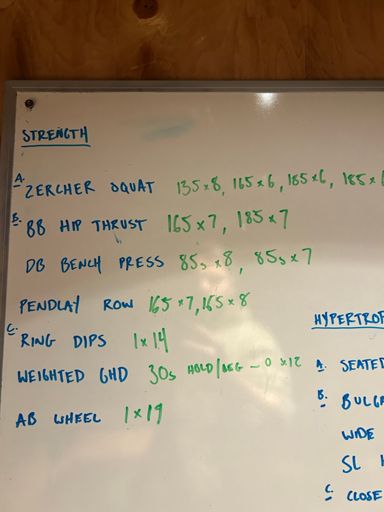 STRENGTH
A. ZERCHER SQUAT 135x8, 165x6, 185x6, 185x
B. BB HIP THRUST 165x7, 185x7
DB BENCH PRESS 85s x8, 85s x7
PENDLAY ROW 165x7, 165x8
C. RING DIPS 1x14
WEIGHTED GHD 30s HOLD/ - 0 x12
AB WHEEL 1x19
HYPERTROF
A. SEATED
B. BULGA
WIDE
SL
C. CLOSE